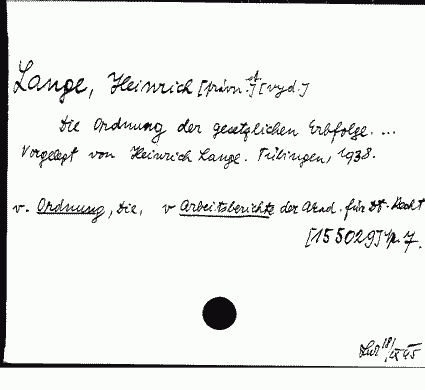 Lange, Heinrich [právn. st.] [vyd.]
Die Ordnung der gesetzlichen Erbfolge. ...
Vorgelegt von Heinrich Lange. Tübingen, 1938.
v. Ordnung, Die, v Arbeitsberichte der Akad. für Dt. Recht
[155029] 7.
18/IX 45